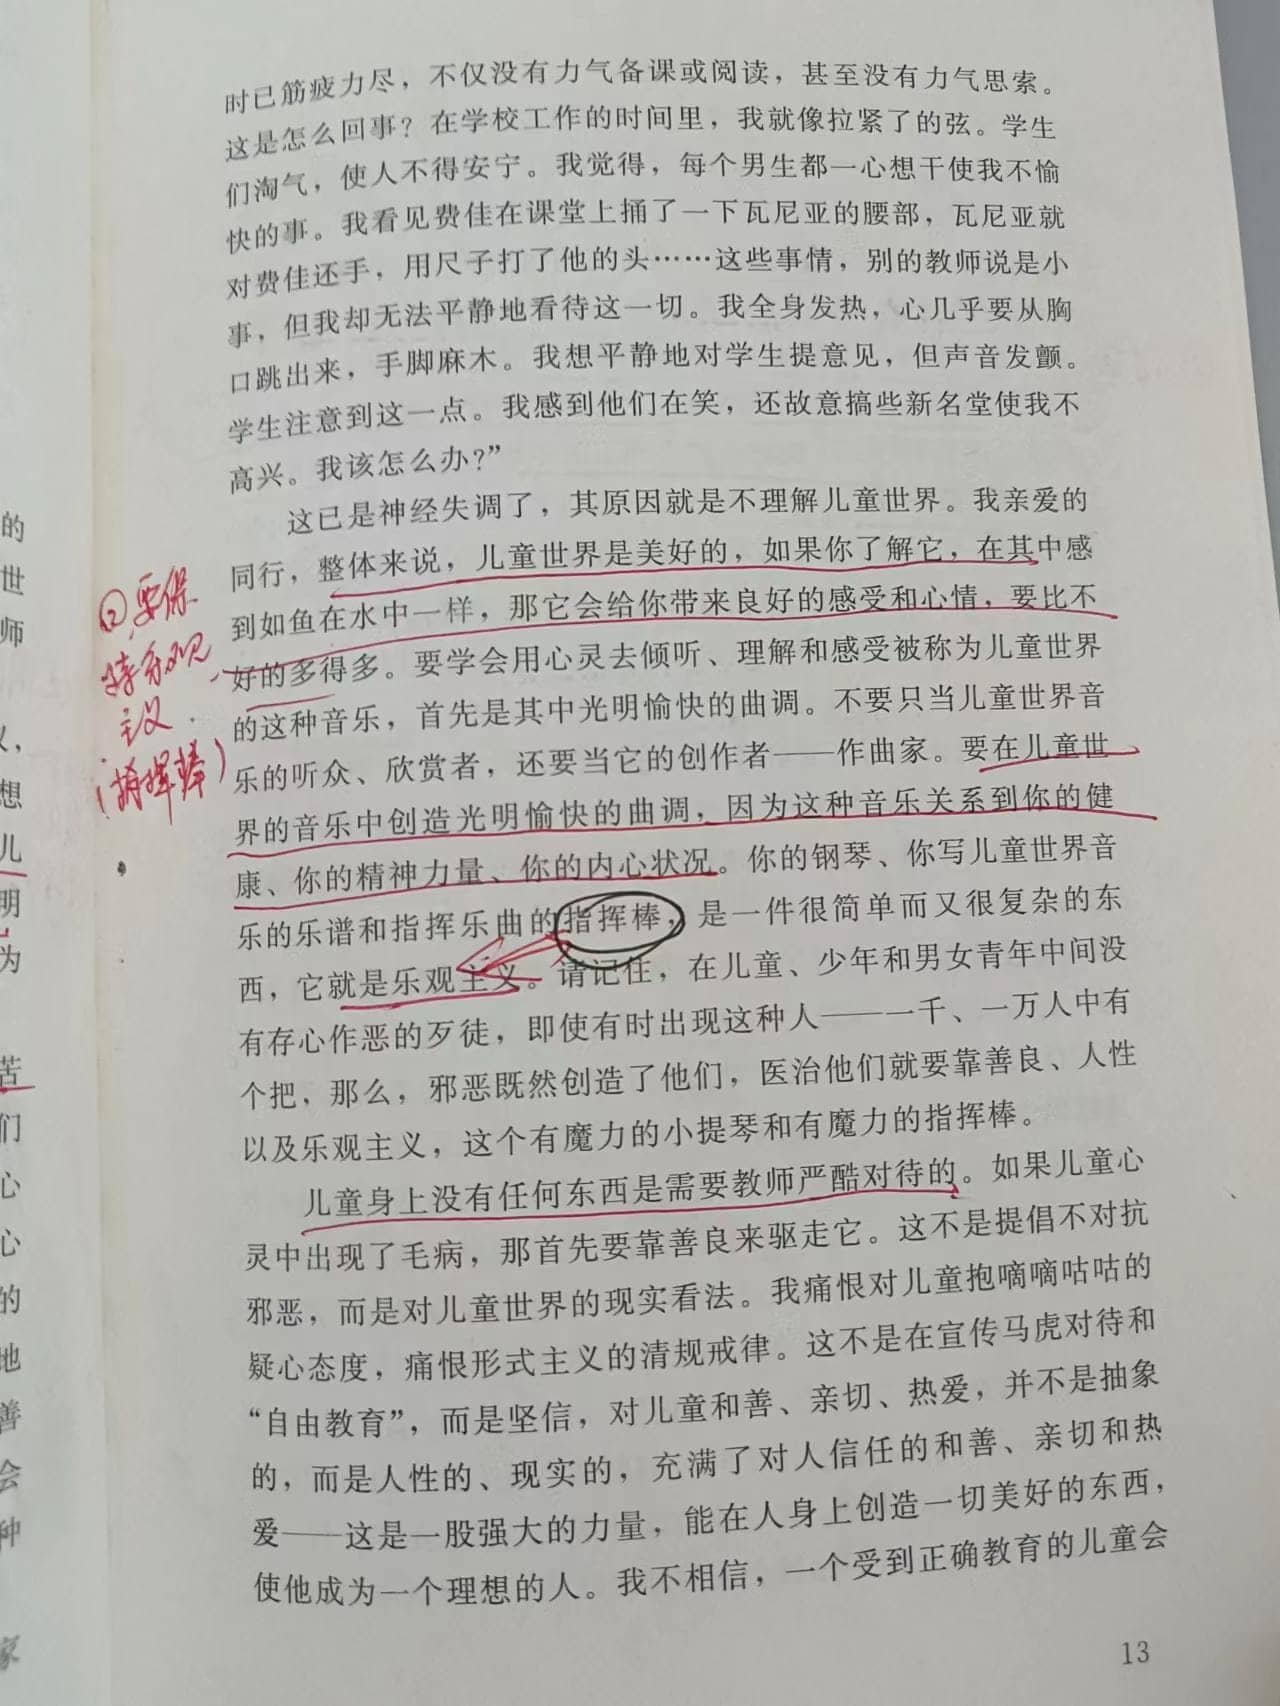 时已筋疲力尽，不仅没有力气备课或阅读，甚至没有力气思索。
这是怎么回事？在学校工作的时间里，我就像拉紧了的弦。学生
们淘气，使人不得安宁。我觉得，每个男生都一心想干使我不愉
快的事。我看见费佳在课堂上捅了一下瓦尼亚的腰部，瓦尼亚就
对费佳还手，用尺子打了他的头……这些事情，别的教师说是小
事，但我却无法平静地看待这一切。我全身发热，心几乎要从胸
口跳出来，手脚麻木。我想平静地对学生提意见，但声音发颤。
学生注意到这一点。我感到他们在笑，还故意搞些新名堂使我不
高兴。我该怎么办？”
这已是神经失调了，其原因就是不理解儿童世界。我亲爱的
同行，整体来说，儿童世界是美好的，如果你了解它，在其中感
到如鱼在水中一样，那它会给你带来良好的感受和心情，要比不
好的多得多。要学会用心灵去倾听、理解和感受被称为儿童世界
的这种音乐，首先是其中光明愉快的曲调。不要只当儿童世界音
乐的听众、欣赏者，还要当它的创作者——作曲家。要在儿童世
界的音乐中创造光明愉快的曲调，因为这种音乐关系到你的健
康、你的精神力量、你的内心状况。你的钢琴、你写儿童世界音
乐的乐谱和指挥乐曲的指挥棒，是一件很简单而又很复杂的东
西，它就是乐观主义。请记住，在儿童、少年和男女青年中间没
有存心作恶的歹徒，即使有时出现这种人——一千、一万人中有
个把，那么，邪恶既然创造了他们，医治他们就要靠善良、人性
以及乐观主义，这个有魔力的小提琴和有魔力的指挥棒。
儿童身上没有任何东西是需要教师严酷对待的。如果儿童心
灵中出现了毛病，那首先要靠善良来驱走它。这不是提倡不对抗
邪恶，而是对儿童世界的现实看法。我痛恨对儿童抱嘀嘀咕咕的
疑心态度，痛恨形式主义的清规戒律。这不是在宣传马虎对待和
“自由教育”，而是坚信，对儿童和善、亲切、热爱，并不是抽象
的，而是人性的、现实的，充满了对人信任的和善、亲切和热
爱——这是一股强大的力量，能在人身上创造一切美好的东西，
使他成为一个理想的人。我不相信，一个受到正确教育的儿童会
13
②要保
持乐观
主义
（指挥棒）
的
世
师
想
儿
明
为
苦
们
心
心
的
地
善
会
种
家